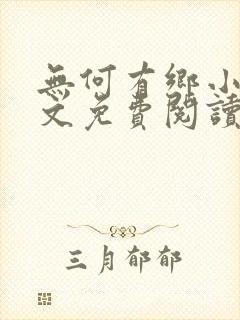 無何有鄉小
文免費閱讀
三月郁郁